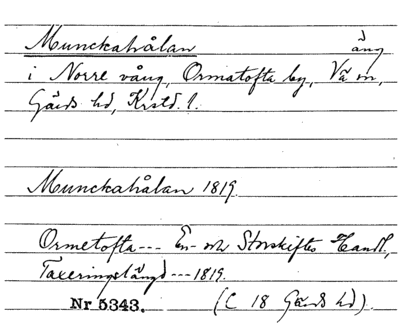 Munckahålan äng
i Norre vång, Ormatofta by, Vä sn,
Gärds hd, Krstd. l.
Munckahålan 1819.
Ormetofta--- En- och Storskiftes Handl.,
Taxeringslängd---1819.
Nr 5343. (C 18 Gärds hd).